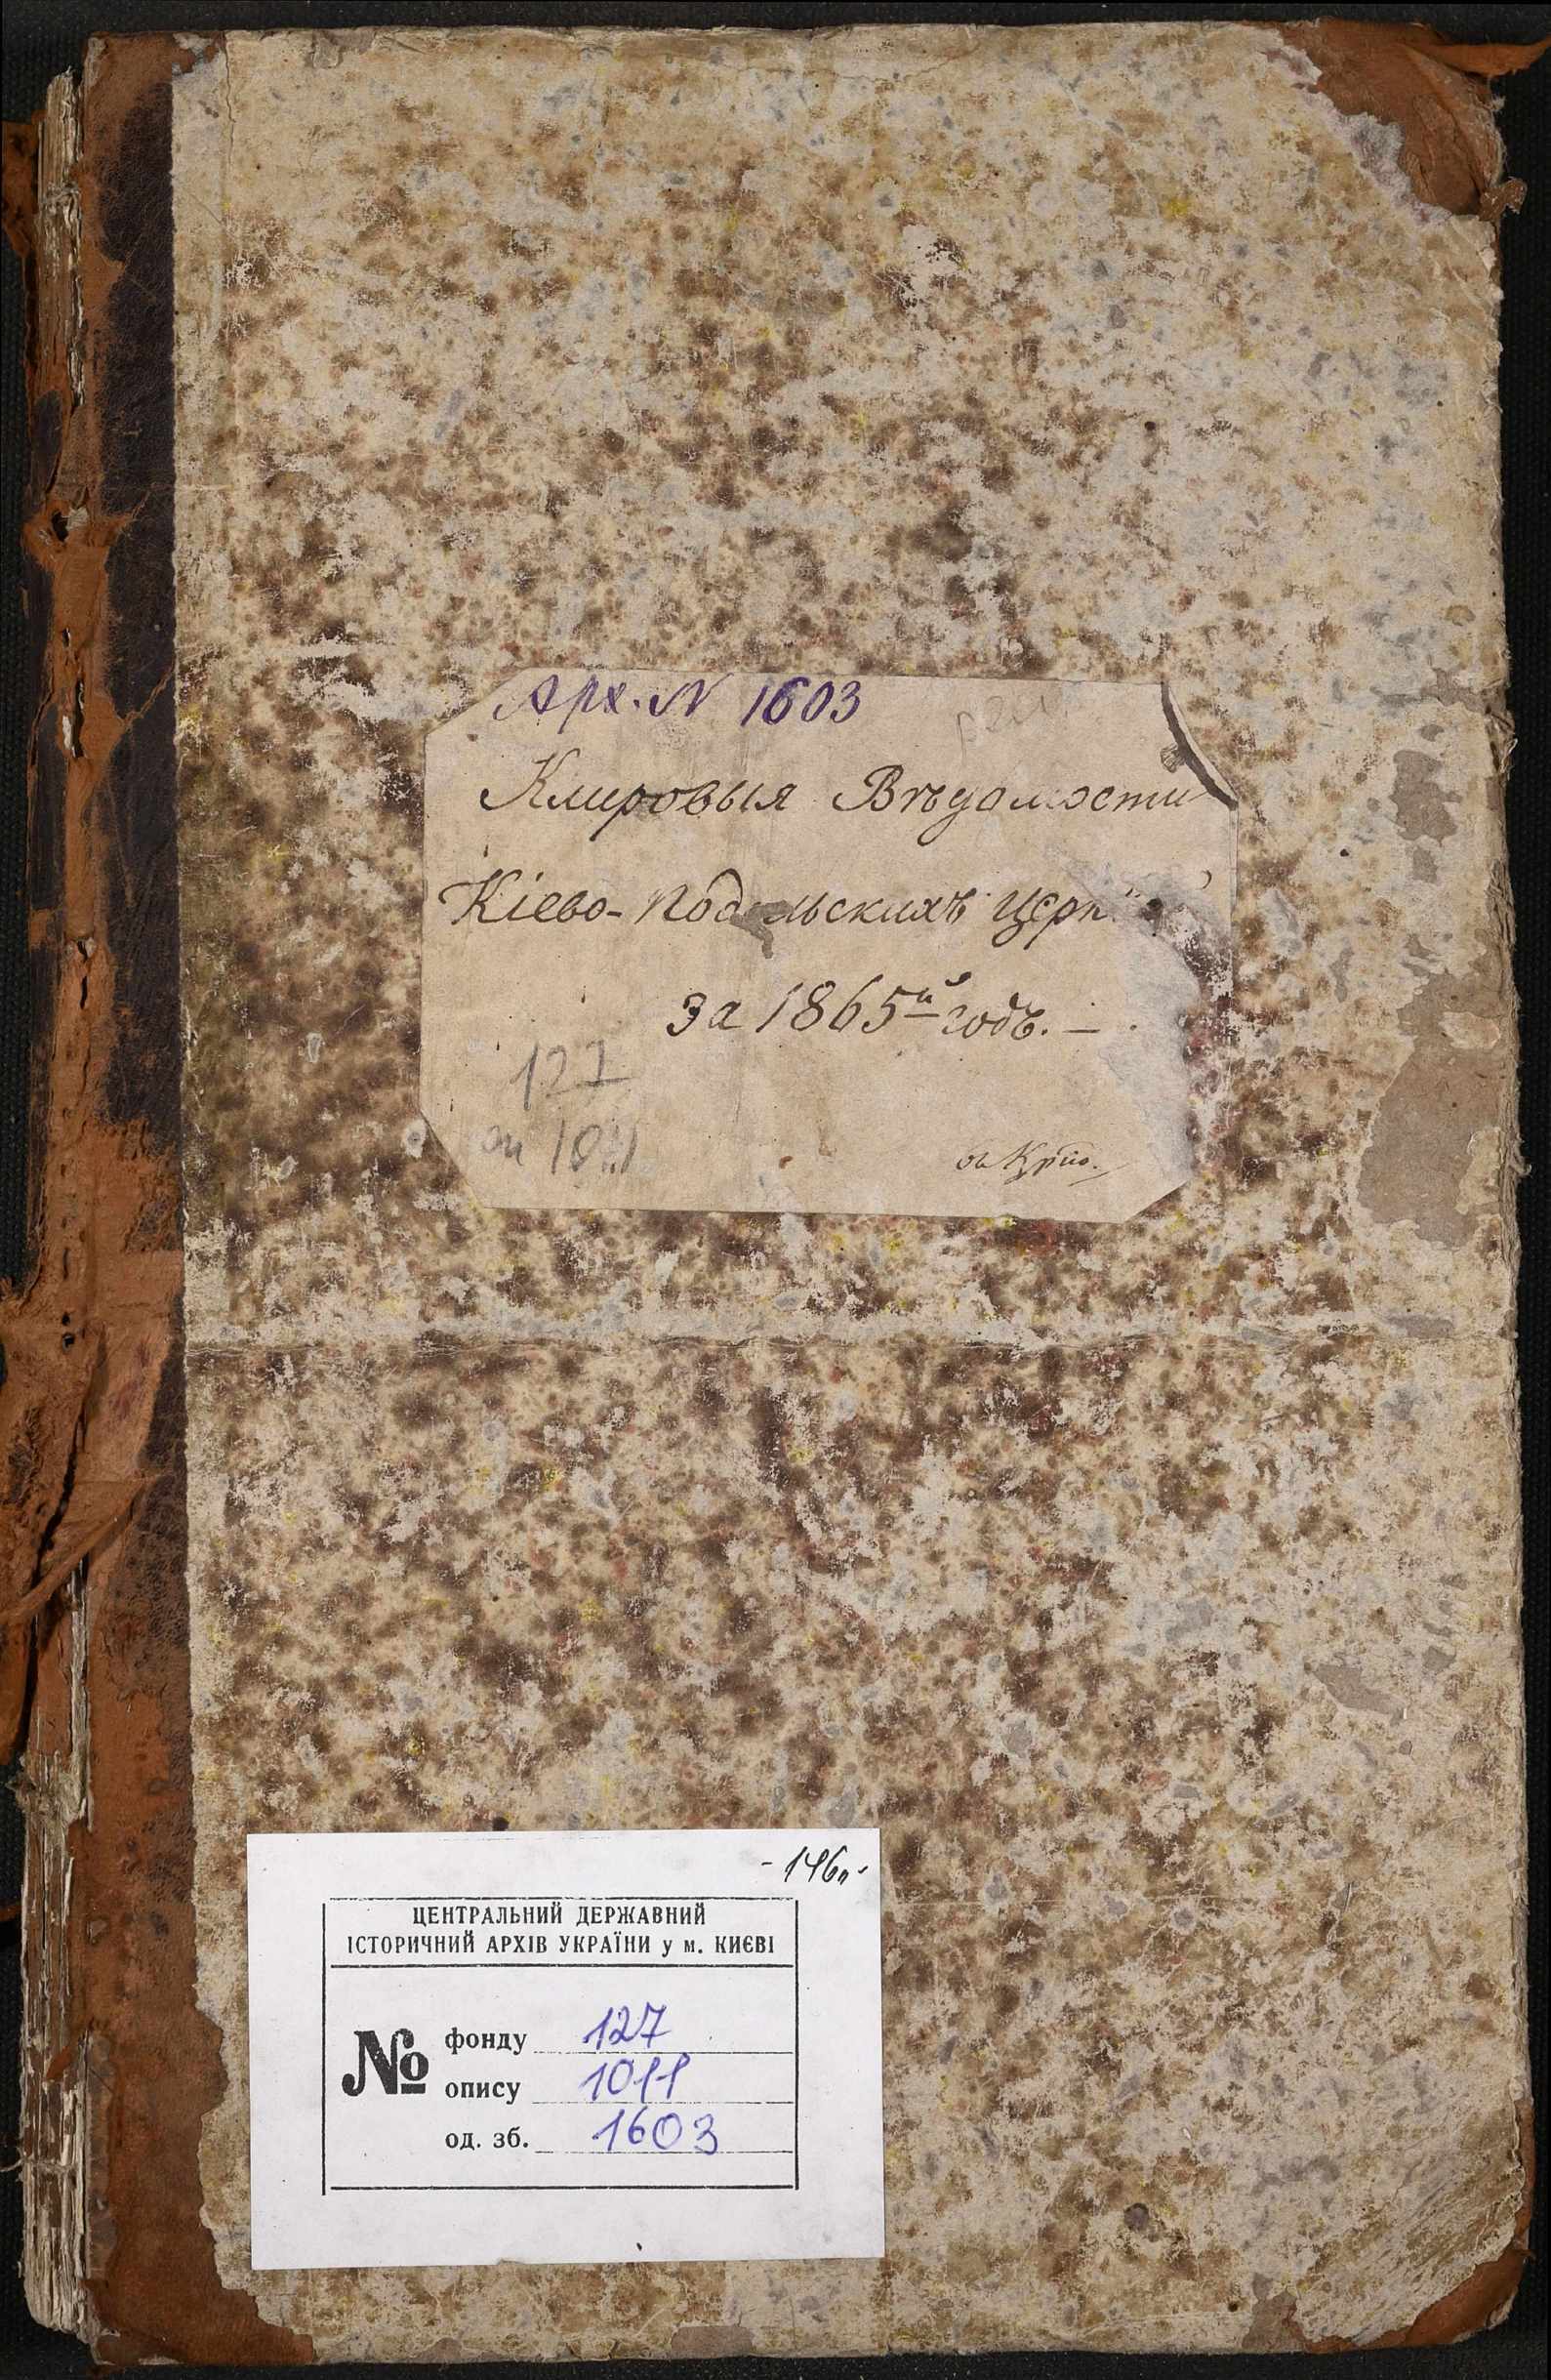 Арх. N 1603
Клировыя Вѣдомости
Кіево-Подольскихъ Церквей
за 1865й годъ. –
127
оп 1011
- 146 л
ЦЕНТРАЛЬНИЙ ДЕРЖАВНИЙ
ІСТОРИЧНИЙ АРХІВ УКРАЇНИ у м. КИЄВІ
№ фонду 127
опису 1011
од. зб. 1603